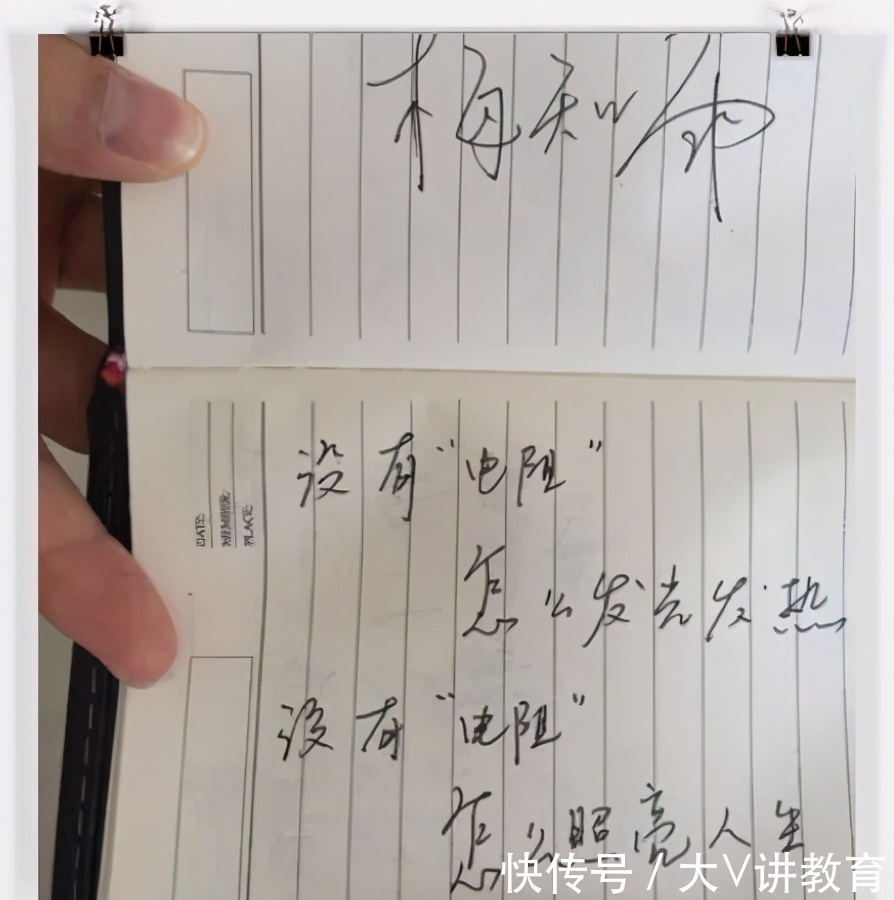 没有“电阻”
怎么发光发热
没有“电阻”
怎么照亮人生
快传号 / 大V讲教育